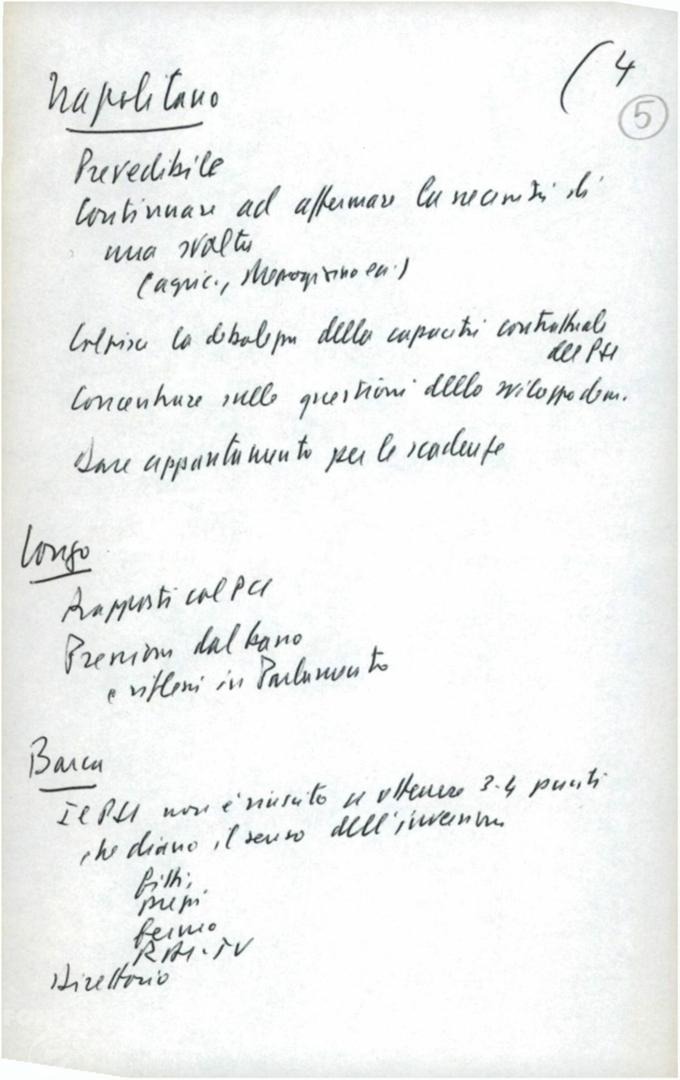 (4
5
Napolitano
Prevedibile
Continuare ad affermare la necessità di
una svolta
(agric., Mezzogiorno ecc.)
Colpisce la debolezza della capacità contrattuale
del PSI
Concentrare sulle questioni dello sviluppo dem.
Dare appuntamento per le scadenze
Longo
Rapporti col PCI
Pressioni dal basso
e riflessi in Parlamento
Barca
Il PSI non è riuscito a ottenere 3-4 punti
che diano il senso dell'inversione
fitti,
prezzi
fermo
RAI-TV
Direttorio